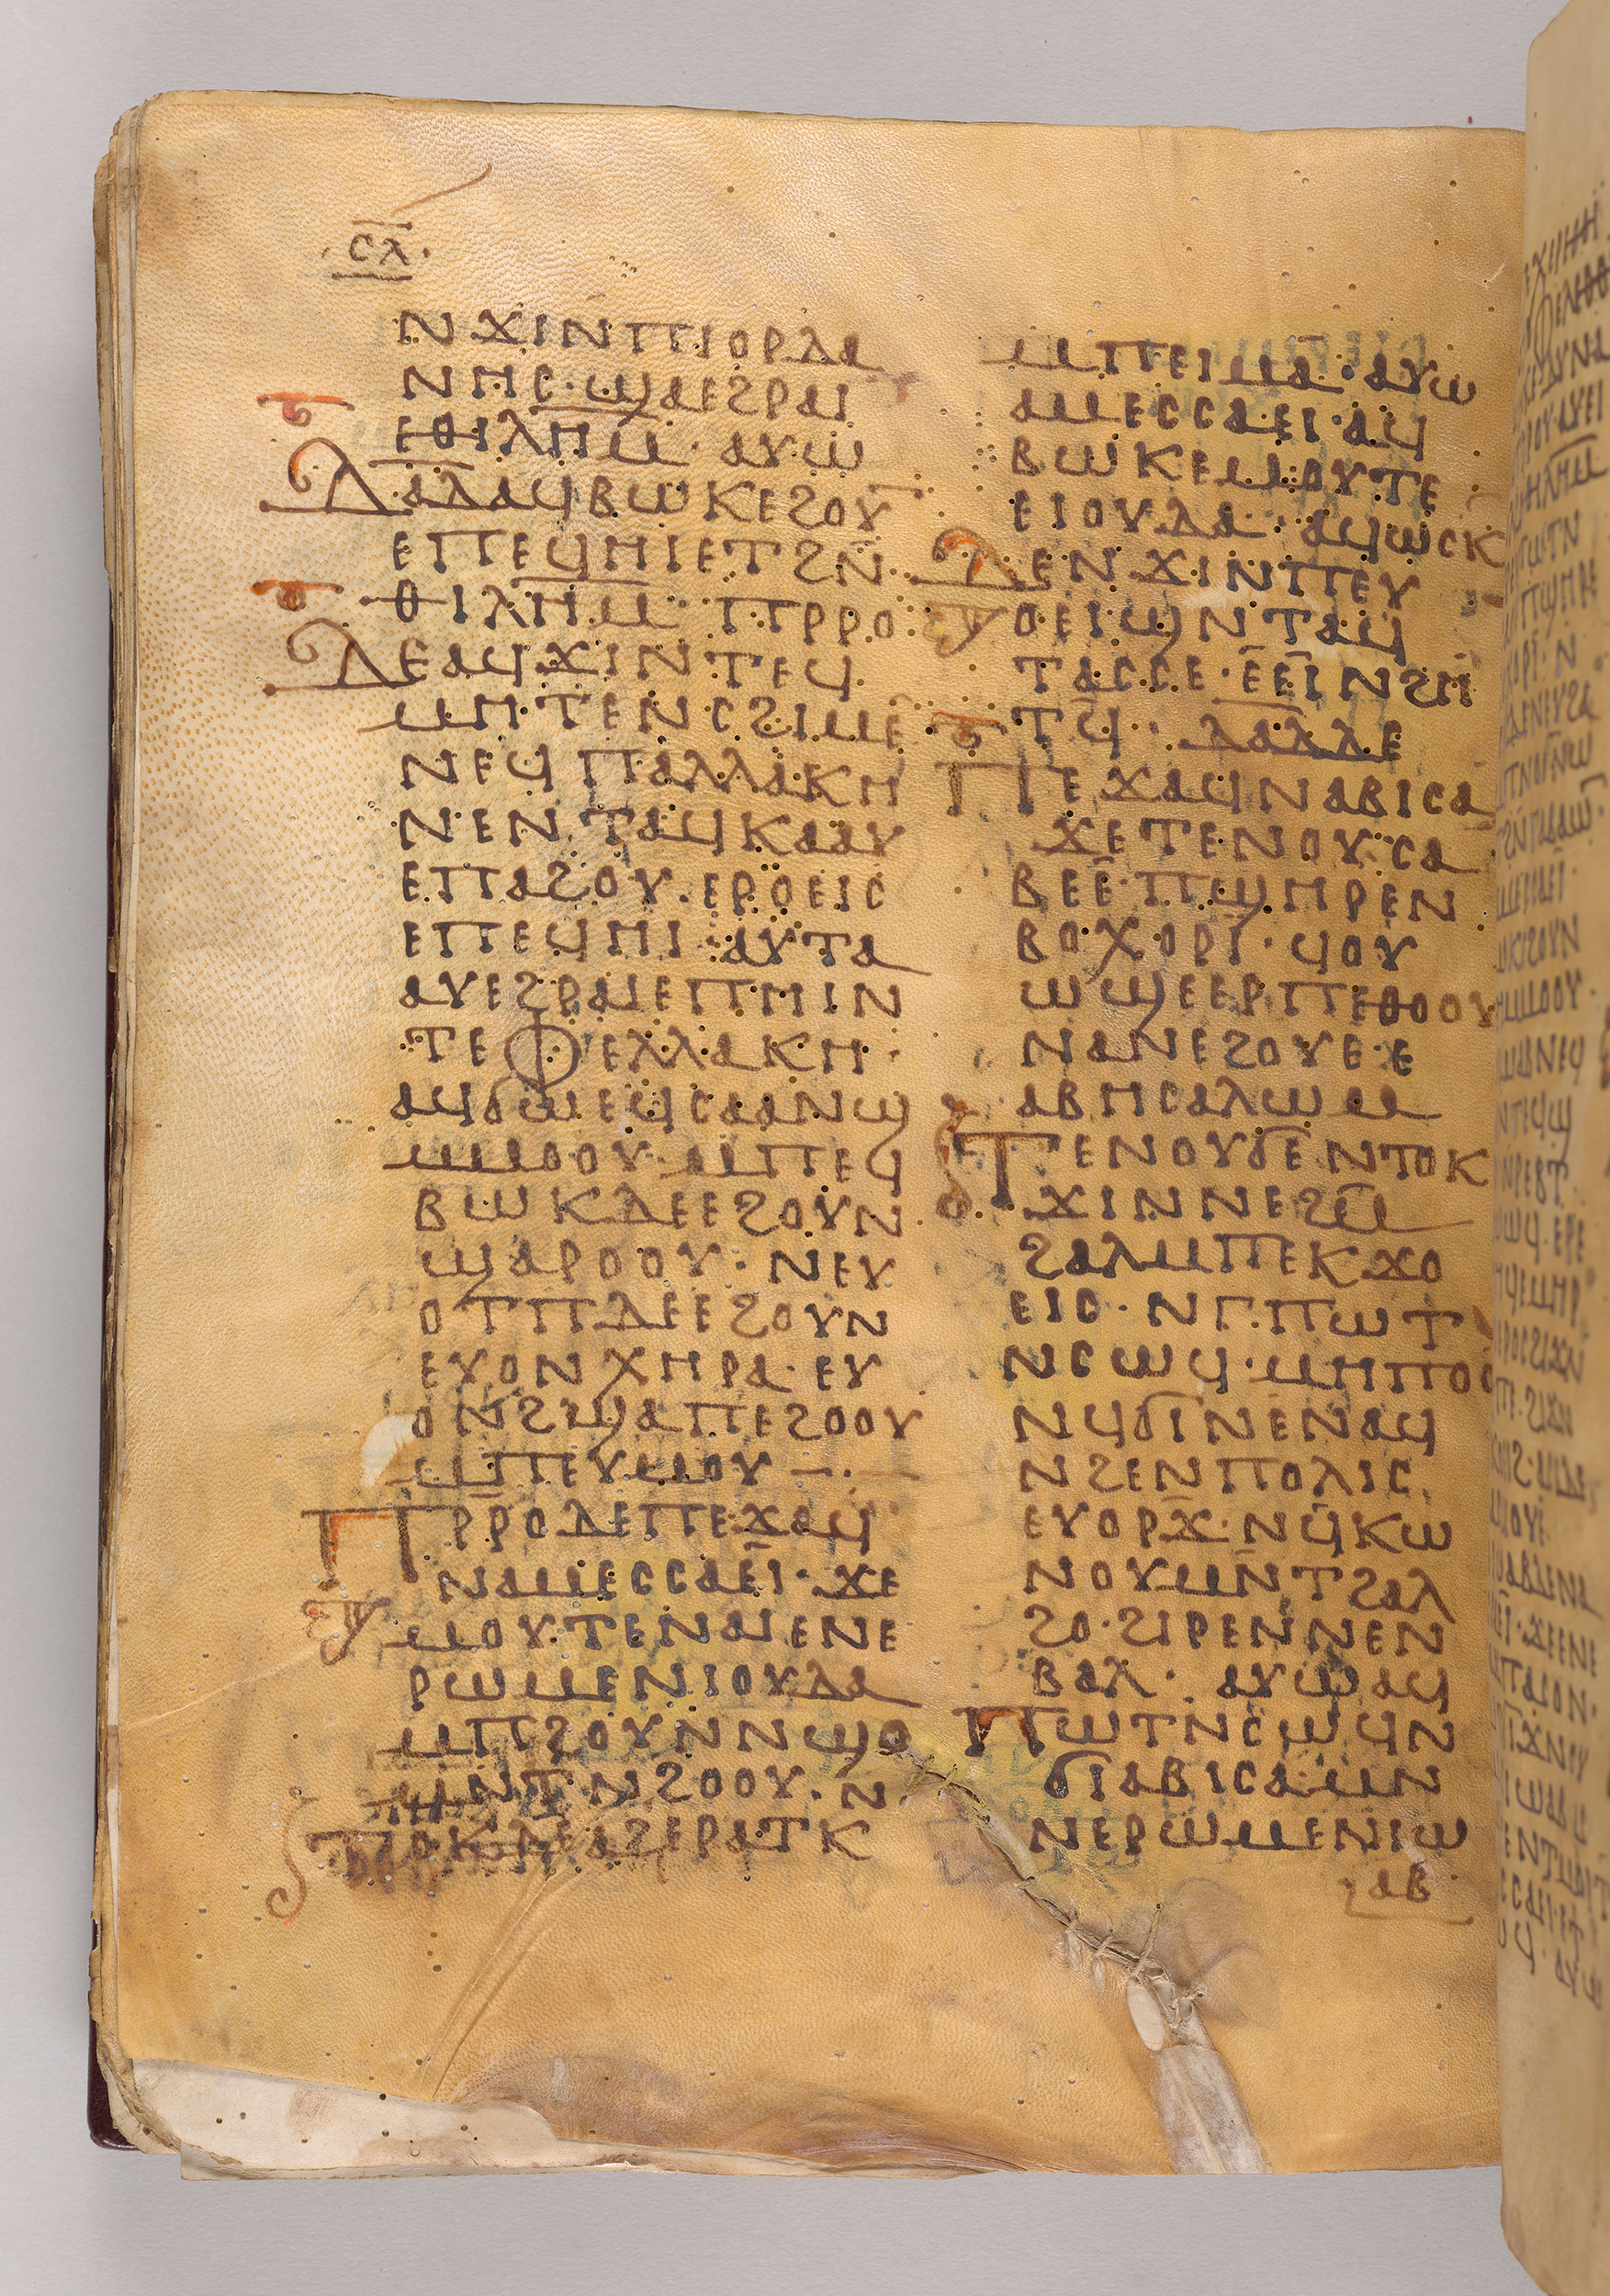 ⲥⲗ
ⲛϫⲓⲛⲡⲓⲟⲣⲇⲁ
ⲛⲏⲥ· ϣⲁⲉϩⲣⲁⲓ
ⲉⲑⲓⲗⲏⲙ· ⲁⲩⲱ
ⲇⲁⲇⲁϥⲃⲱⲕⲉϩⲟⲩ
ⲉⲡⲉϥⲏⲓⲉⲧϩⲛ̄
ⲑⲓⲗⲏⲙ· ⲡⲣⲣⲟ
ⲇⲉⲁϥϫⲓⲛⲧⲉϥ
ⲙⲏⲧⲉⲛⲥϩⲓⲙⲉ
ⲛⲉϥⲡⲁⲗⲗⲁⲕⲏ
ⲛⲉⲛⲧⲁϥⲕⲁⲁⲩ
ⲉⲡⲁϩⲟⲩ· ⲉⲣⲟⲉⲓⲥ
ⲉⲡⲉϥⲏⲓ· ⲁϥⲧⲁ
ⲁⲩⲉϩⲣⲁⲓⲉⲡⲏⲓⲛ
ⲧⲉⲫⲉⲗⲗⲁⲕⲏ·
ⲁϥϭⲱⲉϥⲥⲁⲁⲛϣ
ⲙⲙⲟⲟⲩ· ⲙⲡⲉϥ
ⲃⲱⲕⲇⲉⲉϩⲟⲩⲛ
ϣⲁⲣⲟⲟⲩ· ⲛⲉⲩ
ⲟⲧⲡⲇⲉⲉϩⲟⲩⲛ
ⲉⲩⲟⲛⲭⲏⲣⲁ· ⲉⲩ
ⲟⲛϩϣⲁⲡⲉϩⲟⲟⲩ
ⲙⲡⲉⲩⲙⲟⲩ
ⲡⲣ̄ⲣⲟⲇⲉⲡⲉϫⲁϥ
ⲛⲁⲙⲉⲥⲥⲁⲉⲓ· ϫⲉ
ⲙⲟⲩⲧⲉⲛⲁⲓⲉⲛⲉ
ⲣⲱⲙⲉⲛⲓⲟⲩⲇⲁ
ⲙⲡϩⲟⲩⲛⲛϣⲟ
ⲙⲛⲧⲛϩⲟⲟⲩ· ⲛ
ⲧⲟⲕⲇⲉⲁϩⲉⲣⲁⲧⲕ
ⲙⲡⲉⲓⲙⲁ· ⲁⲩⲱ
ⲁⲙⲉⲥⲥⲁⲉⲓ· ⲁϥ
ⲃⲱⲕⲉⲙⲟⲩⲧⲉ
ⲉⲓⲟⲩⲇⲁ· ⲁϥⲱⲥⲕ
ⲇⲉⲛϫⲓⲛⲡⲉⲩ
ⲟⲉⲓϣⲛⲧⲁϥ
ⲧⲁⲥⲥⲉ· ⲉ̄ⲉ̄ⲓⲛϩⲏ
ⲧϥ̄· ⲇⲁⲇⲇⲉ
ⲡⲉϫⲁϥⲛⲁⲃⲓⲥⲁ
ϫⲉⲧⲉⲛⲟⲩ· ⲥⲁ
ⲃⲉⲉ̄· ⲡϣⲏⲣⲉⲛ
ⲃⲟⲭⲟⲣⲓ̄· ϥⲟⲩ
ⲱϣⲉⲉⲣⲡⲉⲑⲟⲟⲩ
ⲛⲁⲛⲉϩⲟⲩⲉ· ⲉ
ⲁⲃⲏⲥⲁⲗⲱⲙ
ⲧⲉⲛⲟⲩϭⲉⲛⲧⲟⲕ
ϫⲓⲛⲛⲉϩⲙ̄
ϩⲁⲗⲙⲡⲉⲕϫⲟ
ⲉⲓⲥ· ⲛⲅⲡⲱⲧ
ⲛⲥⲱϥ· ⲙⲏⲡⲟⲥ
ⲛϥϭⲓⲛⲉⲛⲁϥ
ⲛϩⲉⲛⲡⲟⲗⲓⲥ
ⲉⲩⲟⲣϫ̄· ⲛϥ̄ⲕⲱ
ⲛⲟⲩⲙⲛ̄ⲧϩⲁⲗ
ϩⲟ· ϩⲓⲣⲉⲛⲛⲉⲛ
ⲃⲁⲗ· ⲁⲩⲱⲁϥ
ⲡⲱⲧⲛⲥⲱϥⲛ
ϭⲓⲁⲃⲓⲥⲁ· ⲙⲛ
ⲛⲉⲣⲱⲙⲉⲛⲓⲱ
ⲁⲃ·